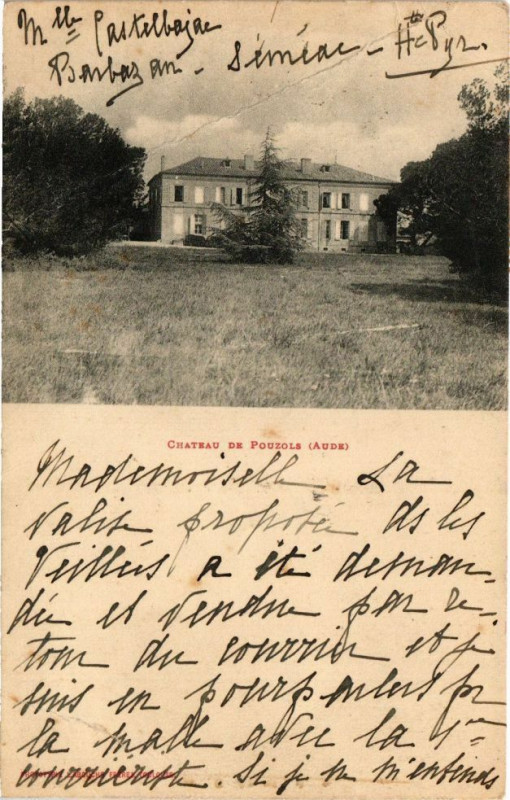 Mlle Castelbajac
Barbazan - Séméac - Hte Pyr.
CHATEAU DE POUZOLS (AUDE)
Mademoiselle La
valise proposée ds les
Veillées a été deman-
dée et vendue par re-
tour du courrier et je
suis en pourparlers pr
la malle avec la 1ère
concurrente. Si je ne m'entends